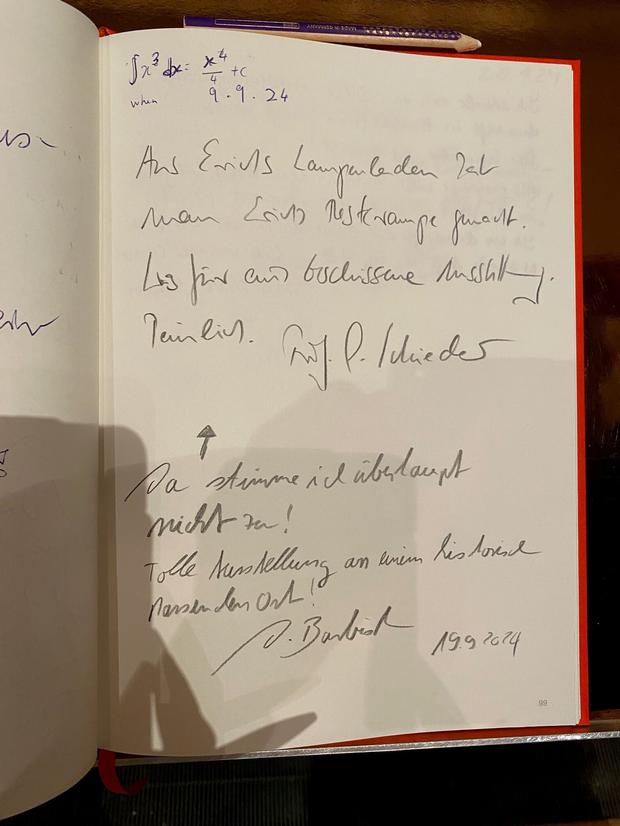 MADE IN GERMANY
∫x³ dx = x⁴/4 + c
when 9.9.24
Aus Erichs Lampenladen hat
man Erichs Resterampe gemacht.
Was für eine beschissene Ausstellung.
Peinlich. Prof. P. Schneider
↑
Da stimme ich überhaupt
nicht zu!
Tolle Ausstellung an einem historisch
passenden Ort!
19.9.2024
99